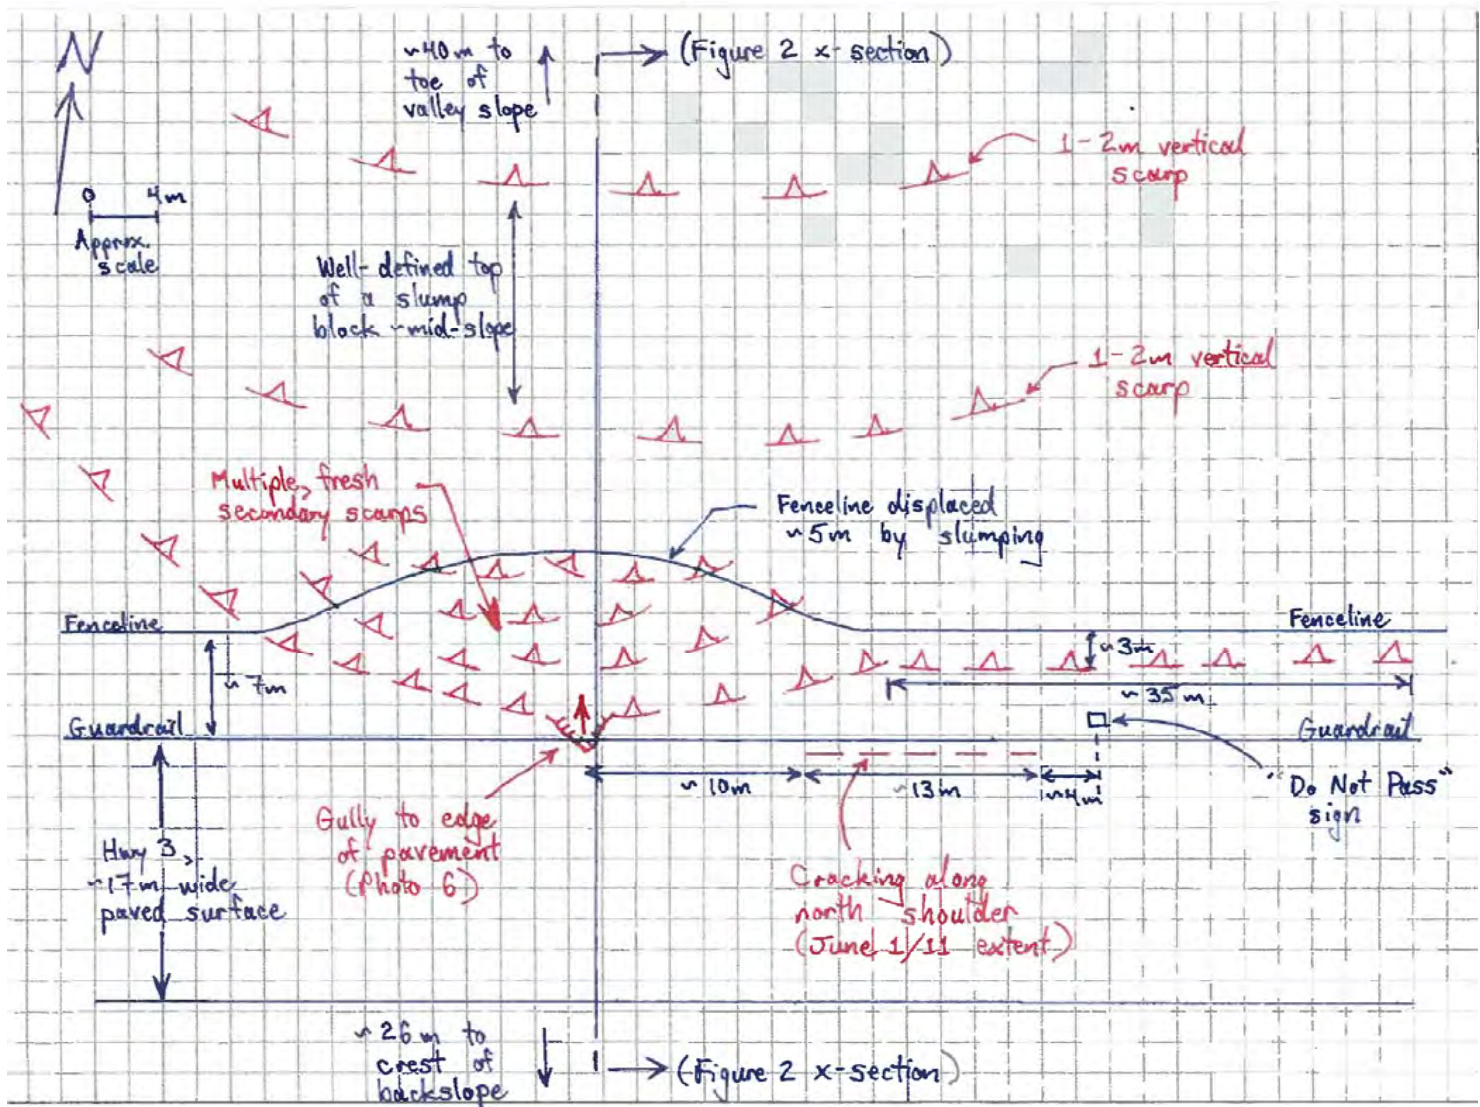 N
~40 m to
toe of
valley slope
(Figure 2 x-section)
1-2m vertical
scarp
0 4m
Approx.
scale
Well-defined top
of a slump
block ~mid-slope
1-2m vertical
scarp
Multiple, fresh
secondary scarps
Fenceline displaced
~5m by slumping
Fenceline
Fenceline
~3m
~7m
~35m
Guardrail
Guardrail
~10m
~13m
~4m
"Do Not Pass"
sign
Gully to edge
of pavement
(Photo 6)
Hwy 3,
~17m wide
paved surface
Cracking along
north shoulder
(June 1/11 extent)
~26m to
crest of
backslope
(Figure 2 x-section)